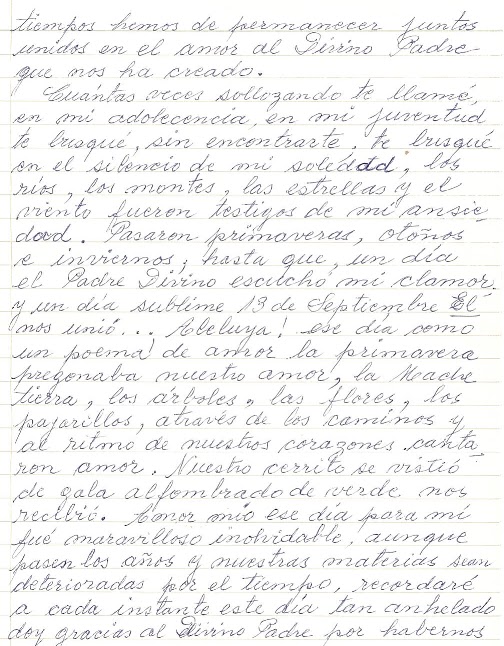 tiempos hemos de permanecer juntos
unidos en el amor al Divino Padre
que nos ha creado.
Cuántas veces sollozando te llamé,
en mi adolecencia, en mi juventud
te busqué, sin encontrarte, te busqué
en el silencio de mi soledad, los
ríos, los montes, las estrellas y el
viento fueron testigos de mi ansie-
dad. Pasaron primaveras, otoños
e inviernos; hasta que, un día
el Padre Divino escuchó mi clamor.
y un día sublime 13 de Septiembre Él
nos unió... Aleluya! ese día como
un poema! de amor la primavera
pregonaba nuestro amor, la Madre
tierra, los árboles, las flores, los
pajarillos, através de los caminos y
al ritmo de nuestros corazones canta-
ron amor. Nuestro cerrito se vistió
de gala alfombrado de verde nos
recibió. Amor mío ese día para mí
fué maravilloso inolvidable, aunque
pasen los años y nuestras materias sean
deterioradas por el tiempo, recordaré
a cada instante este día tan anhelado
doy gracias al Divino Padre por habernos